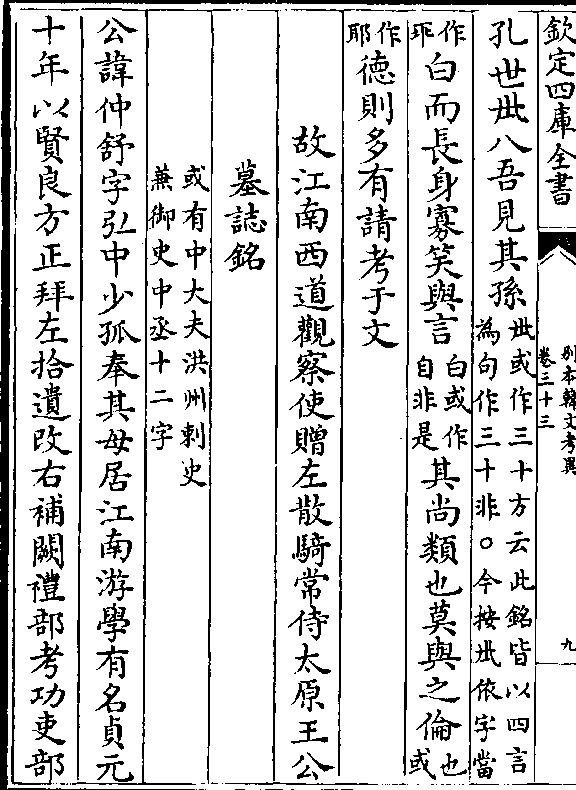 欽定四庫全書
别本韓文考異
卷三十三
九
孔世卅八吾見其孫
卅或作三十方云此銘皆以四言
為句作三十非○今按卅依字當
作
白而長身寡笑與言
白或作
自非是
其尚類也莫與之倫
也
或
作
耶
德則多有請考于文
故江南西道觀察使贈左散騎常侍太原王公
墓誌銘
或有中大夫洪州刺史
兼御史中丞十二字
公諱仲舒字弘中少孤奉其母居江南游學有名貞元
十年以賢良方正拜左拾遺改右補闕禮部考功吏部